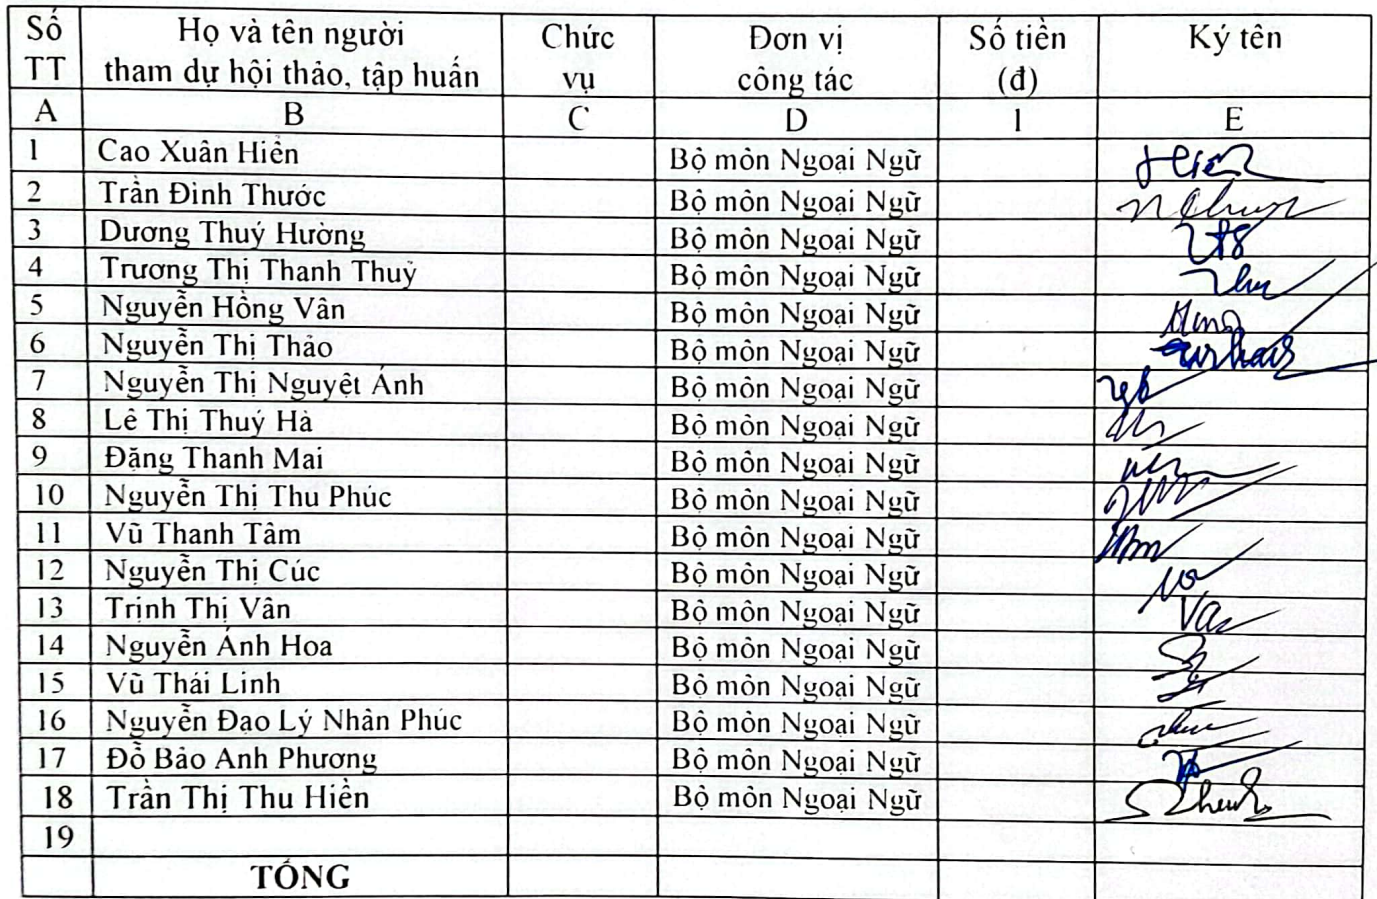 Số TT Họ và tên người tham dự hội thảo, tập huấn Chức vụ Đơn vị công tác Số tiền (đ) Ký tên
A B C D 1 E
1 Cao Xuân Hiển Bộ môn Ngoại Ngữ
2 Trần Đình Thước Bộ môn Ngoại Ngữ
3 Dương Thuý Hường Bộ môn Ngoại Ngữ
4 Trương Thị Thanh Thuỷ Bộ môn Ngoại Ngữ
5 Nguyễn Hồng Vân Bộ môn Ngoại Ngữ
6 Nguyễn Thị Thảo Bộ môn Ngoại Ngữ
7 Nguyễn Thị Nguyệt Ánh Bộ môn Ngoại Ngữ
8 Lê Thị Thuý Hà Bộ môn Ngoại Ngữ
9 Đặng Thanh Mai Bộ môn Ngoại Ngữ
10 Nguyễn Thị Thu Phúc Bộ môn Ngoại Ngữ
11 Vũ Thanh Tâm Bộ môn Ngoại Ngữ
12 Nguyễn Thị Cúc Bộ môn Ngoại Ngữ
13 Trịnh Thị Vân Bộ môn Ngoại Ngữ
14 Nguyễn Ánh Hoa Bộ môn Ngoại Ngữ
15 Vũ Thái Linh Bộ môn Ngoại Ngữ
16 Nguyễn Đạo Lý Nhân Phúc Bộ môn Ngoại Ngữ
17 Đỗ Bảo Anh Phương Bộ môn Ngoại Ngữ
18 Trần Thị Thu Hiền Bộ môn Ngoại Ngữ
19
TỔNG